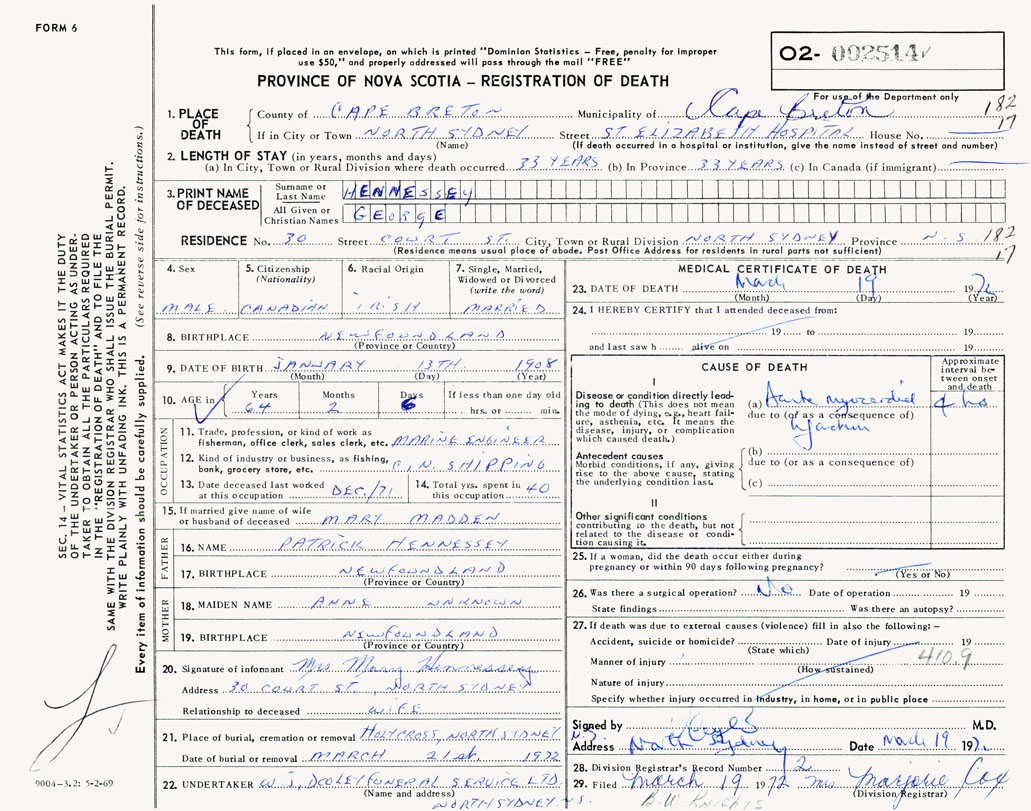 FORM 6
This form, if placed in an envelope, on which is printed "Dominion Statistics – Free, penalty for improper
use $50," and properly addressed will pass through the mail "FREE"
PROVINCE OF NOVA SCOTIA – REGISTRATION OF DEATH
O2- 002514
For use of the Department only
182
17
1. PLACE OF DEATH
County of CAPE BRETON Municipality of Cape Breton
If in City or Town NORTH SYDNEY Street ST ELIZABETH HOSPITAL House No.
(Name) (If death occurred in a hospital or institution, give the name instead of street and number)
2. LENGTH OF STAY (in years, months and days)
(a) In City, Town or Rural Division where death occurred 33 YEARS (b) In Province 33 YEARS (c) In Canada (if immigrant)
3. PRINT NAME OF DECEASED
Surname or Last Name HENNESSEY
All Given or Christian Names GEORGE
RESIDENCE No. 30 Street COURT ST. City, Town or Rural Division NORTH SYDNEY Province N.S. 182
(Residence means usual place of abode. Post Office Address for residents in rural parts not sufficient) 17
4. Sex
MALE
5. Citizenship
(Nationality)
CANADIAN
6. Racial Origin
IRISH
7. Single, Married,
Widowed or Divorced
(write the word)
MARRIED
8. BIRTHPLACE NEWFOUNDLAND
(Province or Country)
9. DATE OF BIRTH JANUARY 13TH. 1908
(Month) (Day) (Year)
10. AGE in Years Months Days If less than one day old
64 2 6 hrs. or min.
OCCUPATION
11. Trade, profession, or kind of work as
fisherman, office clerk, sales clerk, etc. MARINE ENGINEER
12. Kind of industry or business, as fishing,
bank, grocery store, etc. C.N. SHIPPING
13. Date deceased last worked
at this occupation DEC./71
14. Total yrs. spent in
this occupation 40
15. If married give name of wife
or husband of deceased MARY MADDEN
FATHER
16. NAME PATRICK HENNESSEY
17. BIRTHPLACE NEWFOUNDLAND
(Province or Country)
MOTHER
18. MAIDEN NAME ANNE UNKNOWN
19. BIRTHPLACE NEWFOUNDLAND
(Province or Country)
20. Signature of informant Mrs Mary Hennessey
Address 30 COURT ST., NORTH SYDNEY
Relationship to deceased WIFE
21. Place of burial, cremation or removal HOLYCROSS, NORTH SYDNEY N.S.
Date of burial or removal MARCH 21st. 1972
22. UNDERTAKER W.J. DOOLEY FUNERAL SERVICE LTD.
(Name and address)
NORTH SYDNEY. N.S.
MEDICAL CERTIFICATE OF DEATH
23. DATE OF DEATH March 19 1972
(Month) (Day) (Year)
24. I HEREBY CERTIFY that I attended deceased from:
19 to 19
and last saw h alive on 19
CAUSE OF DEATH
Approximate
interval be-
tween onset
and death
I
Disease or condition directly lead-
ing to death (This does not mean
the mode of dying, e.g., heart fail-
ure, asthenia, etc. It means the
disease, injury, or complication
which caused death.)
(a) Acute myocardial 4 hrs
due to (or as a consequence of)
Antecedent causes
Morbid conditions, if any, giving
rise to the above cause, stating
the underlying condition last.
(b)
due to (or as a consequence of)
(c)
II
Other significant conditions
contributing to the death, but not
related to the disease or condi-
tion causing it.
25. If a woman, did the death occur either during
pregnancy or within 90 days following pregnancy?
(Yes or No)
26. Was there a surgical operation? No Date of operation 19
State findings Was there an autopsy?
27. If death was due to external causes (violence) fill in also the following: –
Accident, suicide or homicide? Date of injury 19
(State which)
410.9
Manner of injury
(How sustained)
Nature of injury
Specify whether injury occurred in Industry, in home, or in public place
Signed by M.D.
Address North Sydney Date March 19 1972
28. Division Registrar's Record Number 12
29. Filed March 19 1972 Mrs Marjorie Cox
(Division Registrar)
B.W. KNIGHTS
SEC. 14 – VITAL STATISTICS ACT MAKES IT THE DUTY
OF THE UNDERTAKER OR PERSON ACTING AS UNDER-
TAKER TO OBTAIN ALL THE PARTICULARS REQUIRED
IN THE "REGISTRATION OF DEATH" AND TO FILE THE
SAME WITH THE DIVISION REGISTRAR WHO SHALL ISSUE THE BURIAL PERMIT.
WRITE PLAINLY WITH UNFADING INK. THIS IS A PERMANENT RECORD.
Every item of information should be carefully supplied. (See reverse side for instructions.)
9004-3.2: 5-2-69